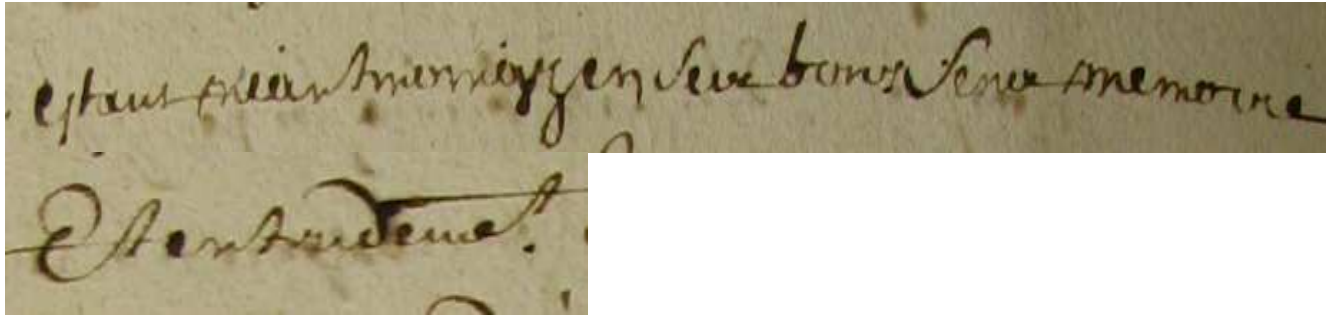 estant neantmoings en ses bons sens memoire
Et entendemet.